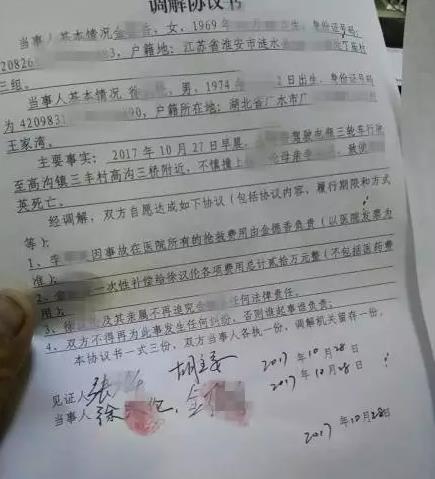 调解协议书
当事人基本情况金 ，女，1969年 出生，身份证号码：
320826 3，户籍地：江苏省淮安市涟水 村
三组。
当事人基本情况徐 ，男，1974 2日出生，身份证号码
为4209831 90，户籍所在地：湖北省广水市广
王家湾。
主要事实：2017年10月27日早晨， 驾驶电频三轮车行驶
至高沟镇三丰村高沟三桥附近，不慎撞上 母亲李 ，致使
英死亡。
经调解，双方自愿达成如下协议（包括协议内容，履行期限和方式
等）：
1、李 因事故在医院所有的抢救费用由金 负责（以医院发票为
准）；
2、 一次性补偿给徐汉伦各项费用总计贰拾万元整（不包括医药费
用）；
3、徐 及其亲属不再追究 任何法律责任。
4、双方不得再为此事发生任何纠纷，否则谁起事谁负责；
本协议书一式三份，双方当事人各执一份，调解机关留存一份。
见证人 张 胡 2017年10月28日
当事人 徐 、金 2017年10月28日
2017年10月28日